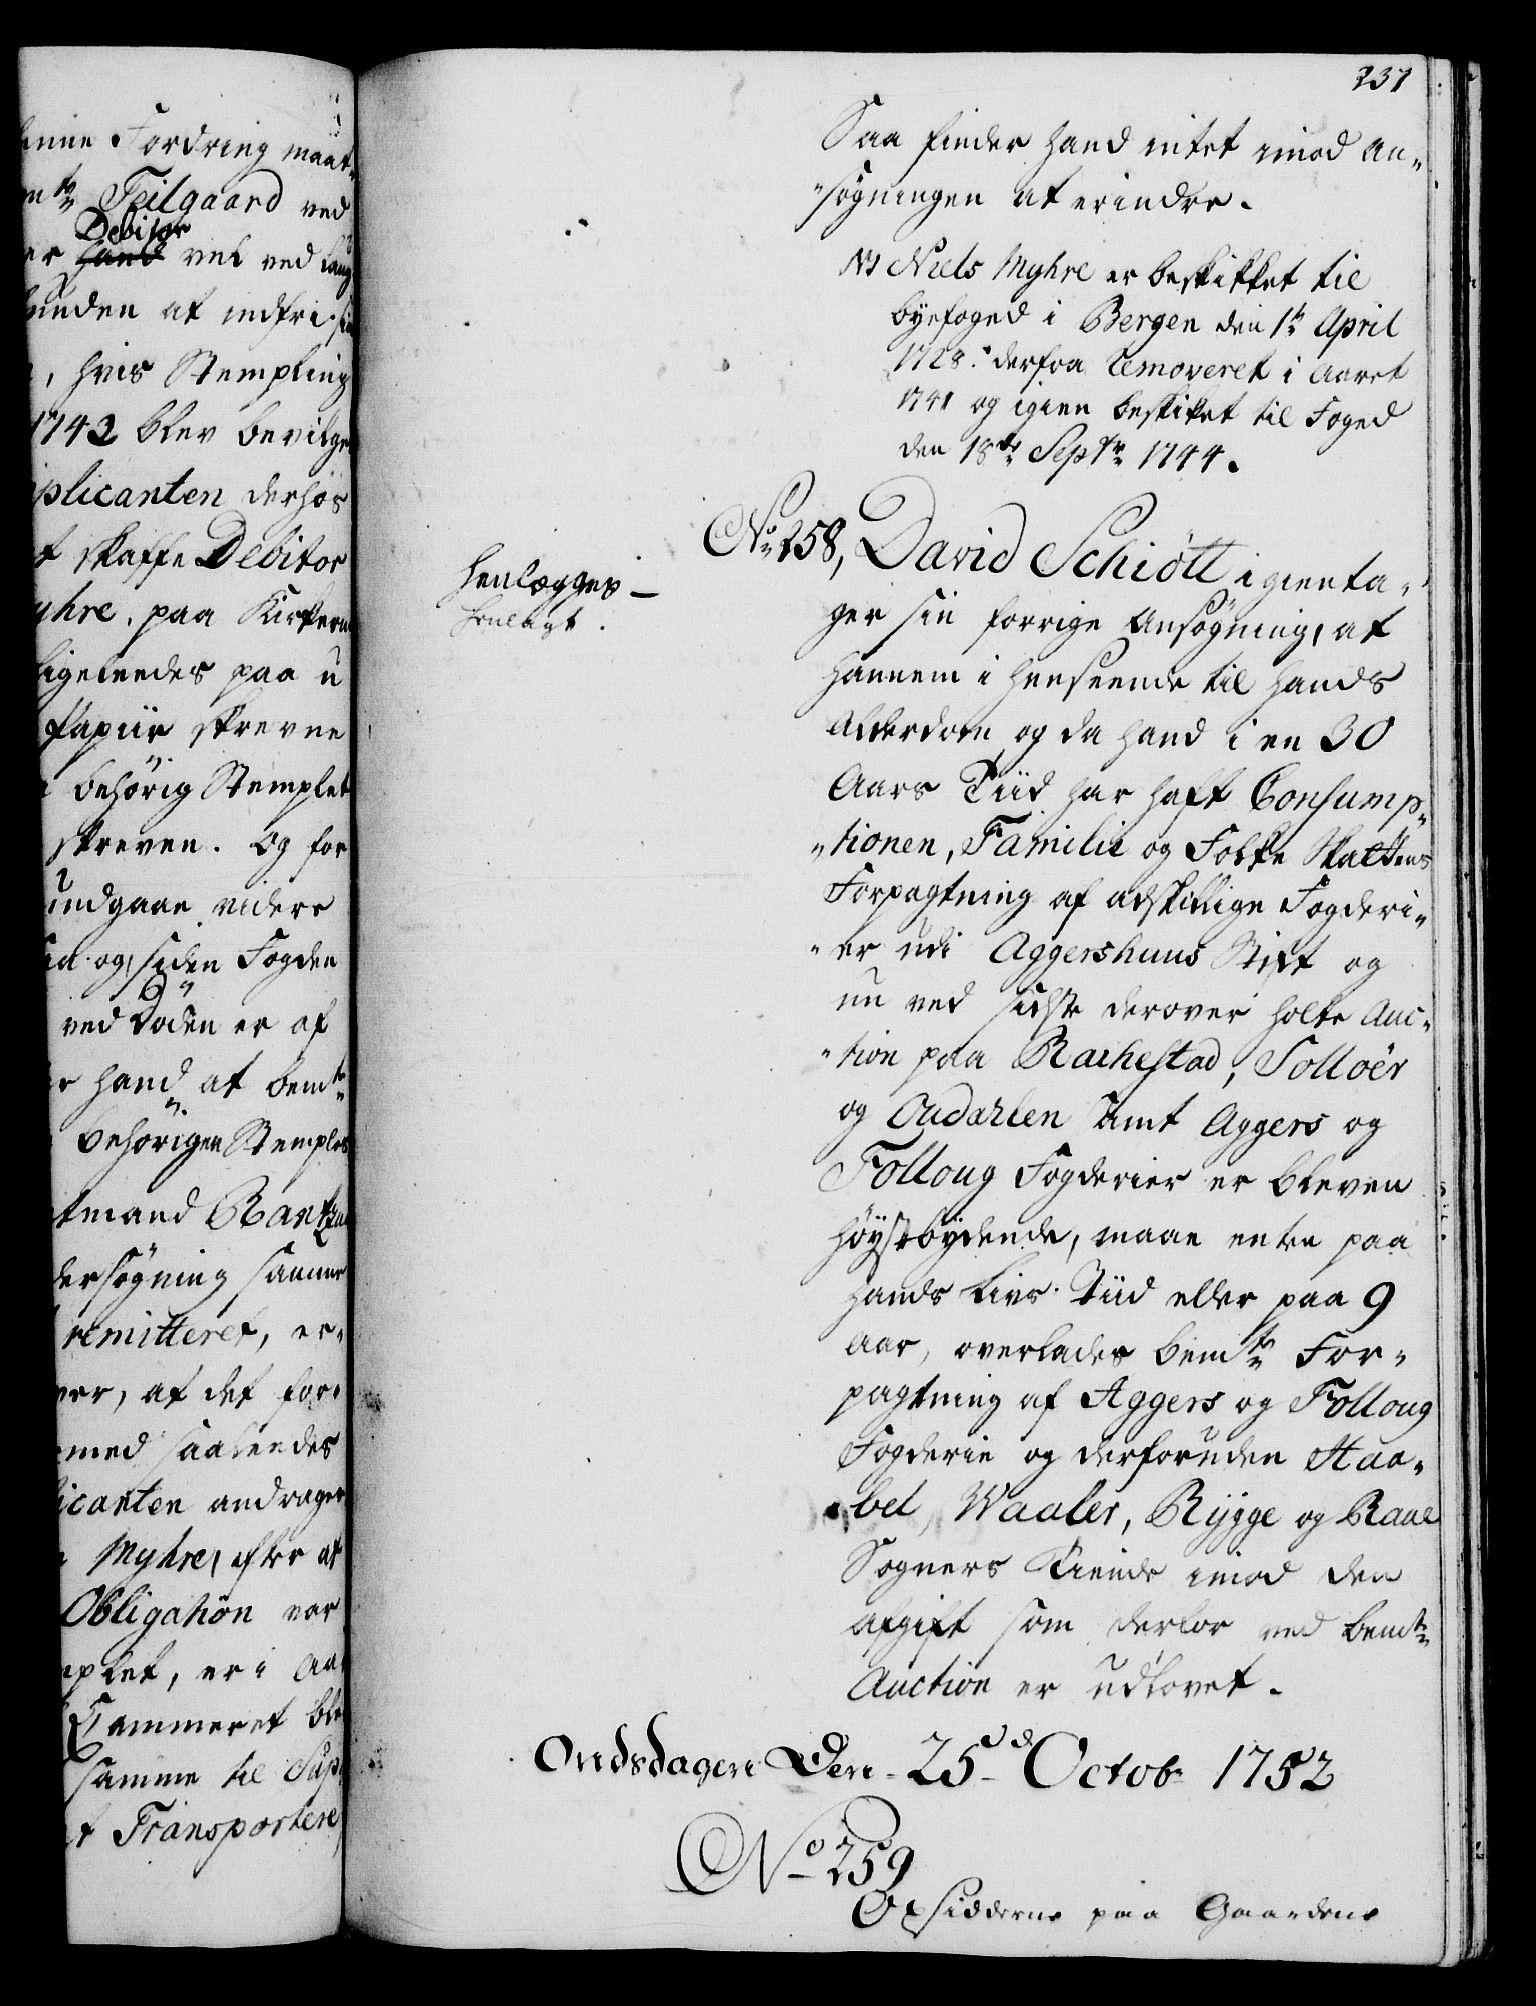 enne Fordring maat-
mte Teilgaard ved
Debitor
er hand vel ved Laug
bunden at indfri sin
, hvis Stempling
1742 blev bevilget
plicanten derhos
t skaffe Debitor
yhre, paa Kirkerne
ligeleedes paa u
Papiir skrevne
behörig Stemplet
skreven. og for
undgaae videre
og siden Fogden
ved Döden er af
r hand at bemte
behörigen Stemplet
tmand Rantzau
dersögning samme
remitteret, er-
ver, at det for-
med saaleedes
icanten andrager
Myhre, efter at
Obligation var
plet, er i Aa
Cammeret ble
samme til Sup
t Transportere
237
Saa finder hand intet imod An-
-sögningen at erindre.
NB Niels Myhre er beskikket til
byefoged i Bergen den 1te April
1728. derfra removeret i Aaret
1741 og igien beskiket til Foged
den 18de Septr 1744.
Henlægges -
henlagt.
No 258, David Schiött igienta-
ger sin forrige Ansögning, at
hannem i henseende til hands
Alderdom og da hand i en 30
Aars Tiid har haft Consump-
-tionen, Familie og Folke Skattens
Forpagtning af adskillige Fogderi-
-er udi Aggershuus Stift og
nu ved sidste derover holte Auc-
-tion paa Rachestad, Solloër
og Oudahlen samt Aggers og
Folloug Fogderier er bleven
höystbydende, maae enten paa
hands Livs Tiid eller paa 9
aar, overlades bemte For-
pagtning af Aggers og Folloug
Fogderie og derforuden Haa-
-bel, Waaler, Rygge og Raae
Sogners Tiende imod den
afgift som derfor ved bemte
Auction er udlovet.
Ondsdagen Den 25de Octobr 1752
No 259
Opsidderne paa Gaardene